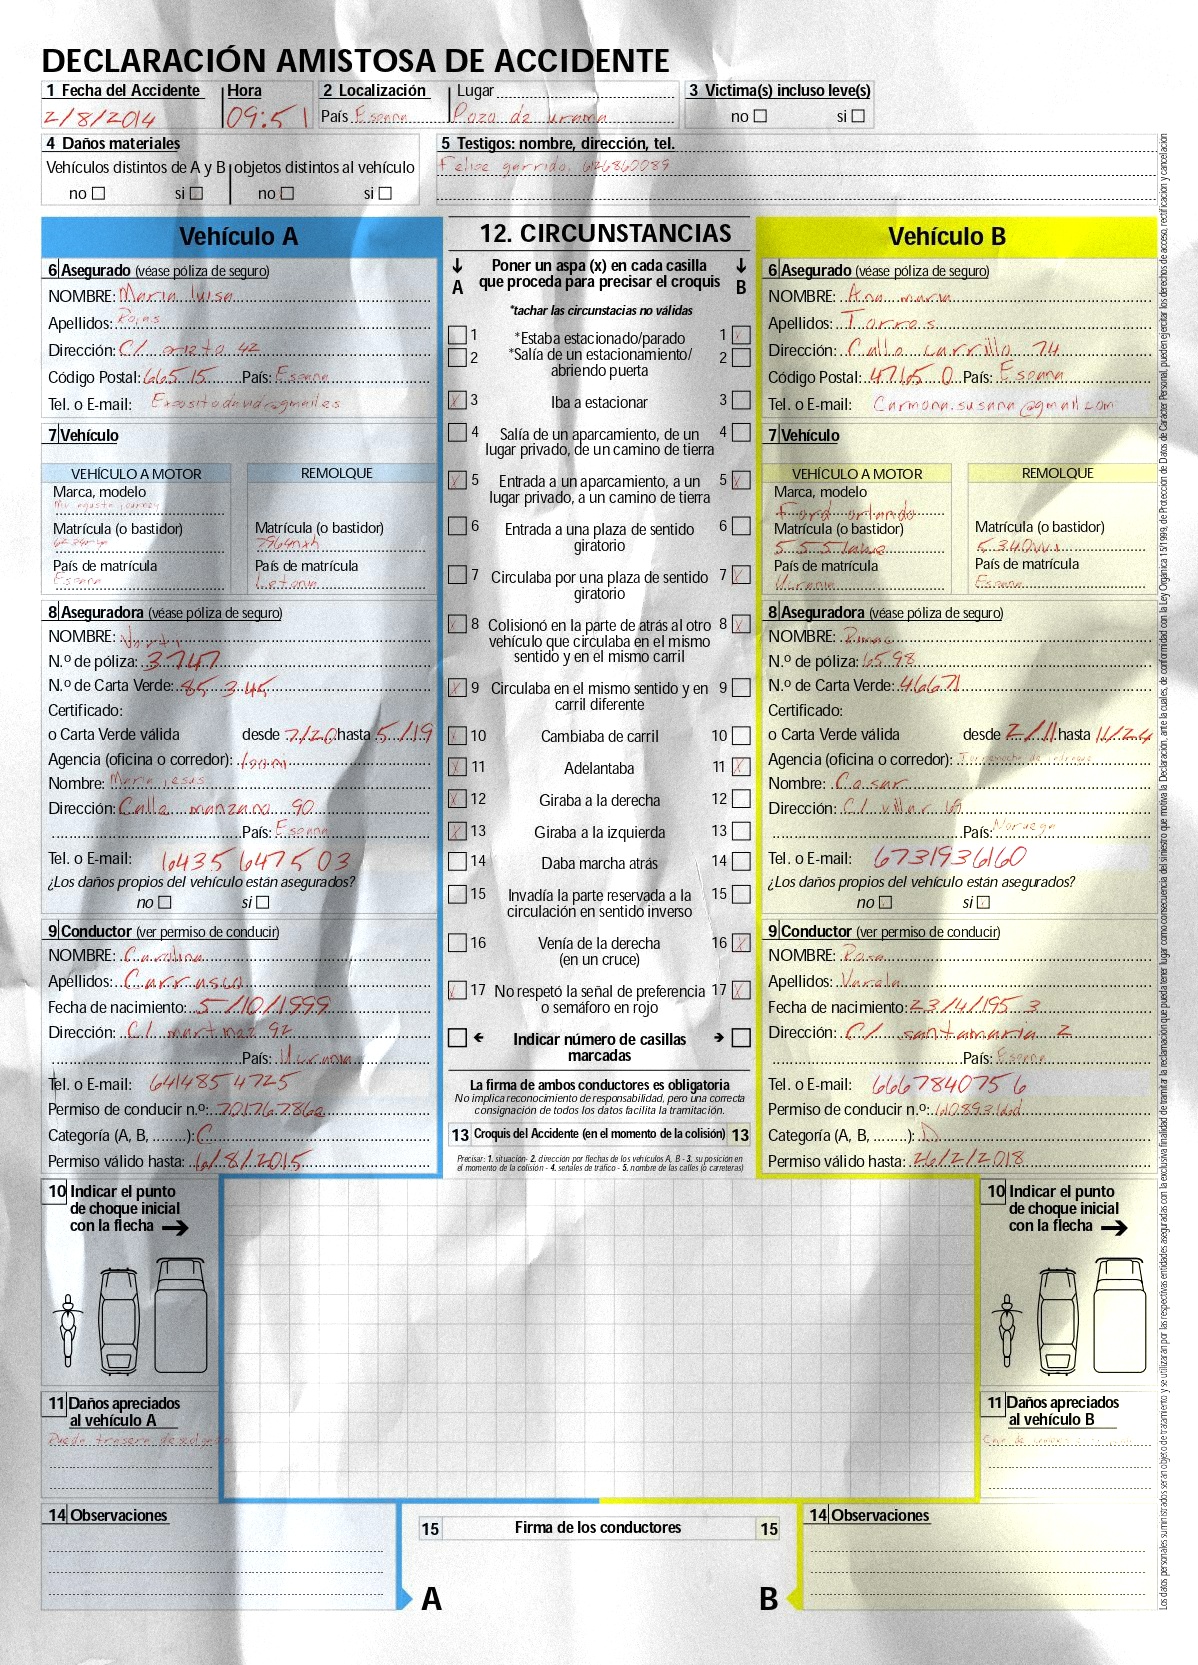 DECLARACIÓN AMISTOSA DE ACCIDENTE
1 Fecha del Accidente Hora 2 Localización Lugar 3 Victima(s) incluso leve(s)
2/8/2014 09:51 País Espana Pozo de urama no si
4 Daños materiales
Vehículos distintos de A y B objetos distintos al vehículo
no si no si
5 Testigos: nombre, dirección, tel.
Felipe garrido, 626860089
Vehículo A
6 Asegurado (véase póliza de seguro)
NOMBRE: Maria luisa
Apellidos: Rojas
Dirección: C/ prieto 42
Código Postal: 66515 País: Espana
Tel. o E-mail: Expositodavid@gmail.es
7 Vehículo
VEHÍCULO A MOTOR REMOLQUE
Marca, modelo
Mv agusta journey
Matrícula (o bastidor) Matrícula (o bastidor)
7964nxh
País de matrícula País de matrícula
Espana Letonia
8 Aseguradora (véase póliza de seguro)
NOMBRE:
N.º de póliza: 3747
N.º de Carta Verde: 85 345
Certificado:
o Carta Verde válida desde 7/20 hasta 5/19
Agencia (oficina o corredor):
Nombre: Maria jesus
Dirección: Calle manzano 90
País: Espana
Tel. o E-mail: 6435 6475 03
¿Los daños propios del vehículo están asegurados?
no si
9 Conductor (ver permiso de conducir)
NOMBRE: Carolina
Apellidos: Carrasco
Fecha de nacimiento: 5/10/1999
Dirección: C/ martinez 92
País: Ucrania
Tel. o E-mail: 641485 4725
Permiso de conducir n.º:
Categoría (A, B, ........): C
Permiso válido hasta: 6/8/2015
12. CIRCUNSTANCIAS
A Poner un aspa (x) en cada casilla que proceda para precisar el croquis B
*tachar las circunstacias no válidas
1 *Estaba estacionado/parado 1 x
2 *Salía de un estacionamiento/ 2
abriendo puerta
x 3 Iba a estacionar 3
4 Salía de un aparcamiento, de un 4
lugar privado, de un camino de tierra
x 5 Entrada a un aparcamiento, a un 5 x
lugar privado, a un camino de tierra
6 Entrada a una plaza de sentido 6
giratorio
7 Circulaba por una plaza de sentido 7 x
giratorio
x 8 Colisionó en la parte de atrás al otro 8 x
vehículo que circulaba en el mismo
sentido y en el mismo carril
x 9 Circulaba en el mismo sentido y en 9
carril diferente
x 10 Cambiaba de carril 10
x 11 Adelantaba 11 x
x 12 Giraba a la derecha 12
x 13 Giraba a la izquierda 13
14 Daba marcha atrás 14
15 Invadía la parte reservada a la 15
circulación en sentido inverso
16 Venía de la derecha 16 x
(en un cruce)
x 17 No respetó la señal de preferencia 17 x
o semáforo en rojo
Indicar número de casillas
marcadas
La firma de ambos conductores es obligatoria
No implica reconocimiento de responsabilidad, pero una correcta
consignación de todos los datos facilita la tramitación.
13 Croquis del Accidente (en el momento de la colisión) 13
Precisar: 1. situación- 2. dirección por flechas de los vehículos A, B - 3. su posición en
el momento de la colisión - 4. señales de tráfico - 5. nombre de las calles (o carreteras)
Vehículo B
6 Asegurado (véase póliza de seguro)
NOMBRE: Ana maria
Apellidos: Torres
Dirección: Calle carrillo 74
Código Postal: 47165 0 País: Espana
Tel. o E-mail: Carmona.susana@gmail.com
7 Vehículo
VEHÍCULO A MOTOR REMOLQUE
Marca, modelo
Ford orlando
Matrícula (o bastidor) Matrícula (o bastidor)
País de matrícula País de matrícula
Ucrania Espana
8 Aseguradora (véase póliza de seguro)
NOMBRE: Rimac
N.º de póliza: 6598
N.º de Carta Verde: 46671
Certificado:
o Carta Verde válida desde 2/11 hasta 11/24
Agencia (oficina o corredor):
Nombre: Cesar
Dirección: C/ villar 69
País: Noruega
Tel. o E-mail: 6731936160
¿Los daños propios del vehículo están asegurados?
no si
9 Conductor (ver permiso de conducir)
NOMBRE: Rosa
Apellidos: Varela
Fecha de nacimiento: 23/4/195 3
Dirección: C/ santamaria 2
País: Espana
Tel. o E-mail: 666784075 6
Permiso de conducir n.º:
Categoría (A, B, ........): D
Permiso válido hasta: 26/2/2018
10 Indicar el punto
de choque inicial
con la flecha
11 Daños apreciados
al vehículo A
Rueda trasera
10 Indicar el punto
de choque inicial
con la flecha
11 Daños apreciados
al vehículo B
14 Observaciones
15 Firma de los conductores 15
A B
14 Observaciones
Los datos personales suministrados seran objeto de tratamiento y se utilizaran por las respectivas entidades aseguradas con la exclusiva finalidad de tramitar la reclamación que pueda tener lugar como consecuencia del siniestro que motiva la Declaración, ante la cuales, de conformidad con la Ley Orgánica 15/1999, de Protección de Datos de Carácter Personal, pueden ejercitar los derechos de acceso, rectificación y cancelación